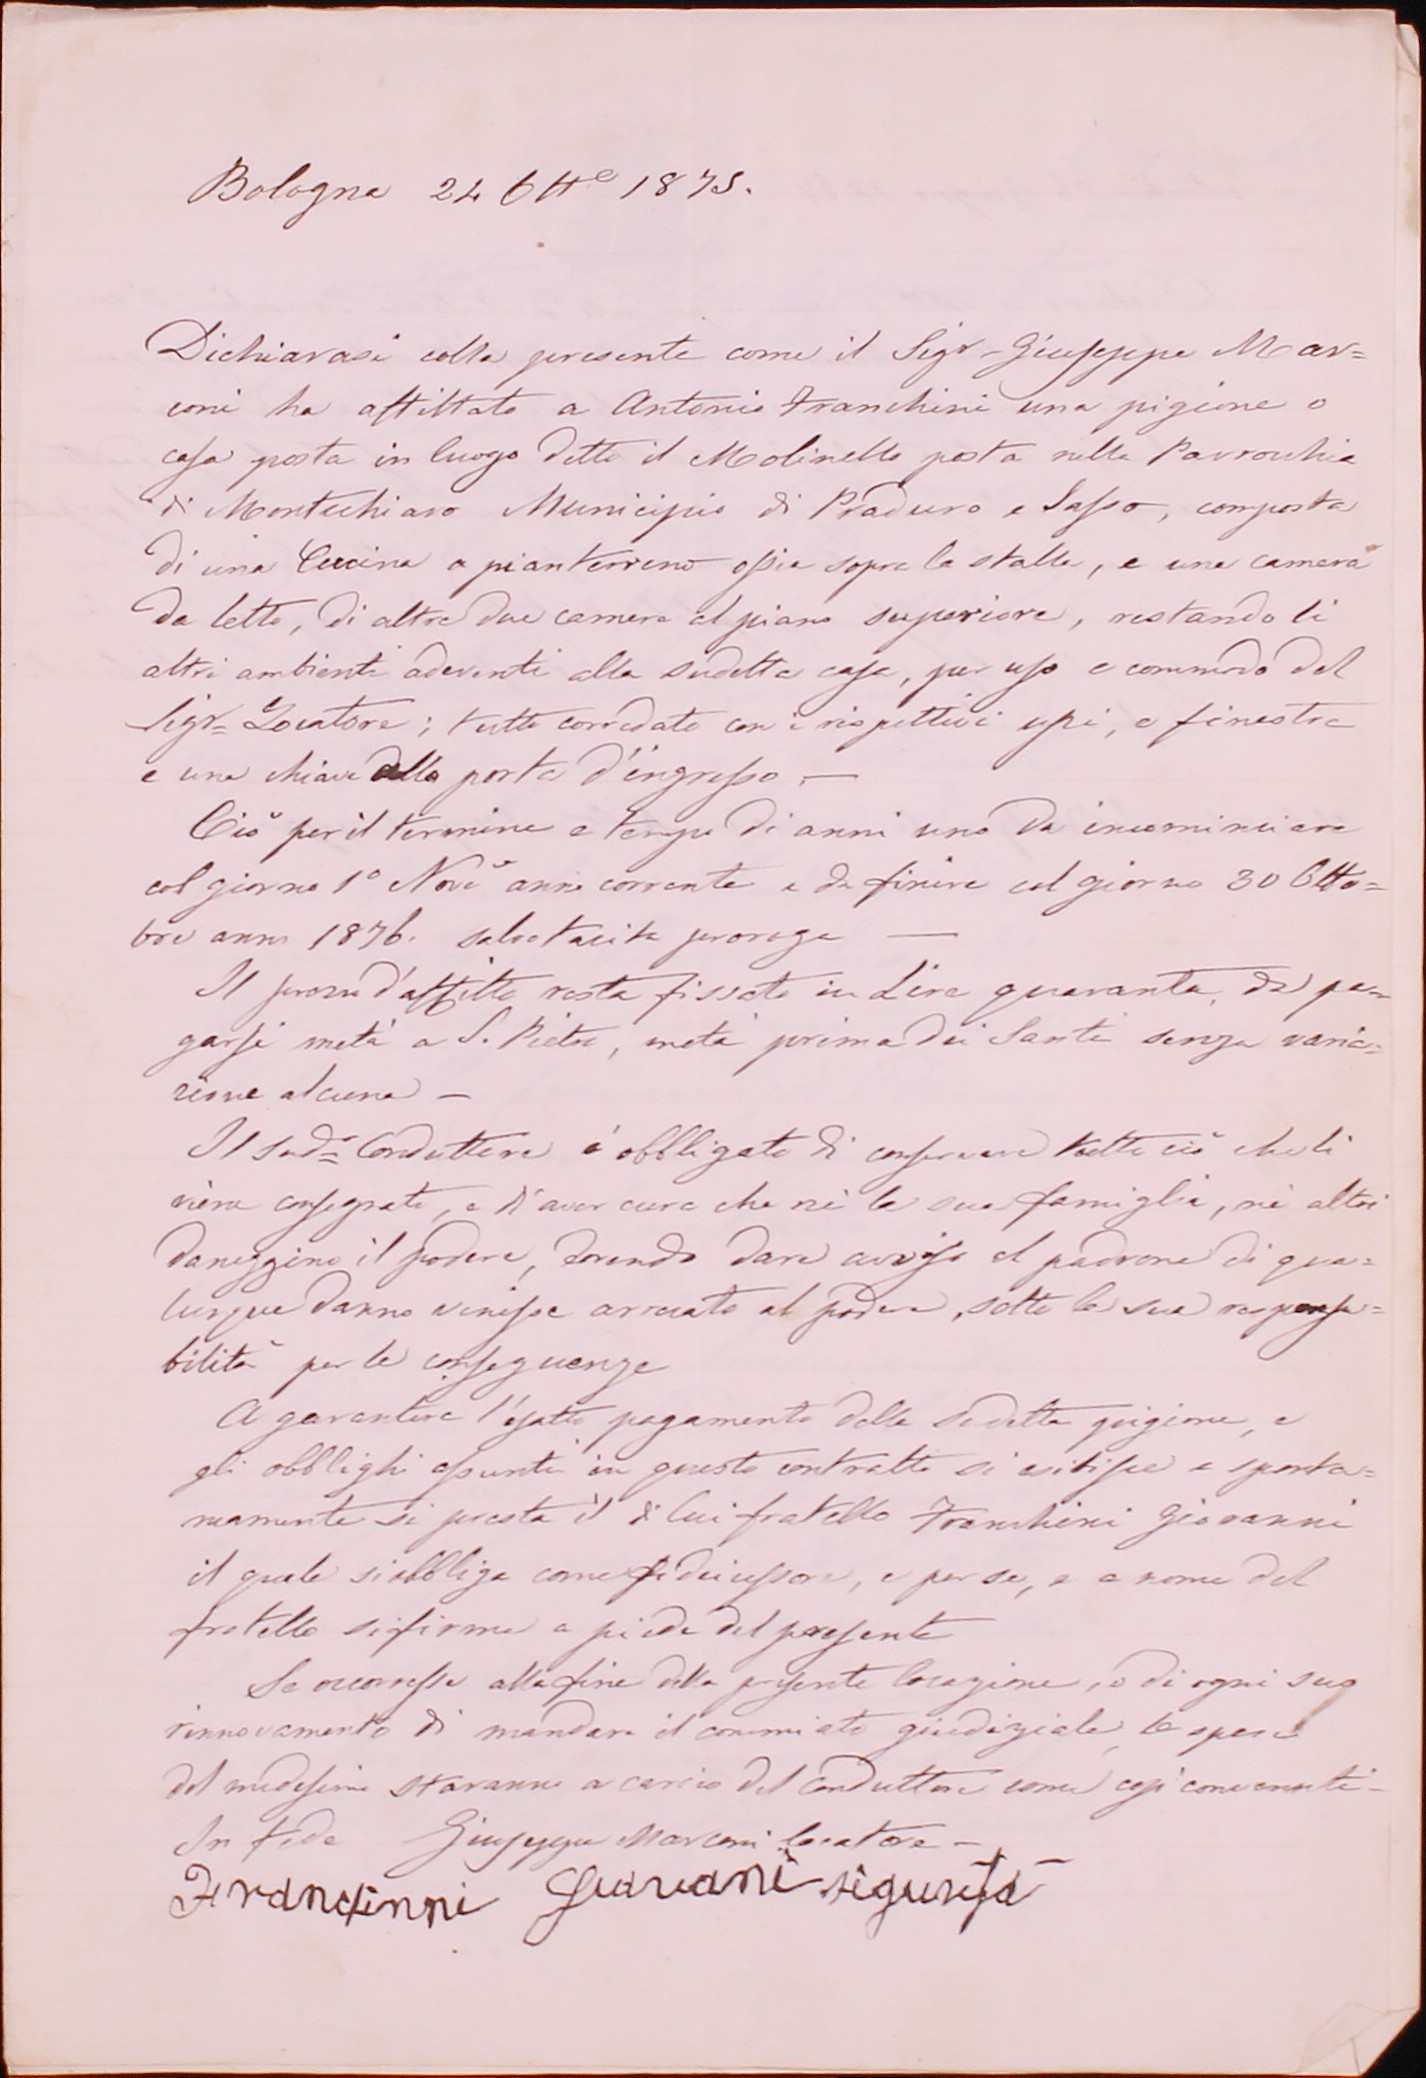 Bologna 24 Ott.e 1875.
Dichiarasi colla presente come il Sigr. Giuseppe Mar=
coni ha affittato a Antonio Franchini una pigione o
casa posta in luogo detto il Molinello posta nella Parrochia
di Montechiaro Municipio di Praduro e Sasso, composta
di una Cucina a pianterreno ossia sopra la stalla, e una camera
da letto, di altre due camere al piano superiore, restando li
altri ambienti aderenti alla sudetta casa, per uso e commodo del
Sigr= Locatore; tutto corredato con i rispettivi usci, e finestre
e una chiave della porta d'ingresso. —
Ciò per il termine e tempo di anni uno da incominciare
col giorno 1° Nove anno corrente e da finire col giorno 30 Otto=
bre anno 1876. salvo tacita proroga —
Il prezzo d'affitto resta fissato in Lire quaranta, da pa=
garsi metà a S. Pietro, metà prima dei Santi senza varia=
zione alcuna —
Il sud.= Conduttore è obbligato di conservare tutto ciò che li
viene consegnato, e di aver cura che nè la sua famiglia, nè altri
daneggino il podere, dovendo dare avviso al padrone di qua=
lunque danno venisse arrecato al podere, sotto la sua responsa=
bilità per le conseguenze
A garantire l'esatto pagamento della sudetta pigione, e
gli obblighi assunti in questo contratto si esibisce e sponta=
neamente si presta il di lui fratello Franchini Giovanni
il quale si obbliga come fideiussore, e per se, e a nome del
fratello si firma a piede del presente
Se occorresse alla fine della presente locazione, o di ogni suo
rinnovamento di mandare il commiato giudiziale, le spese
del medesimo staranno a carico del Conduttore come così convenuti —
In fede Giuseppe Marconi locatore —
Franchinni Giuvani sigurtà